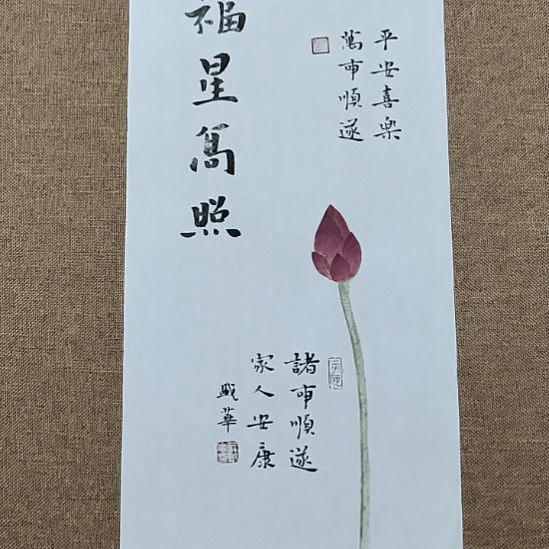 平安喜樂
萬事順遂
福星高照
諸事順遂
家人安康
盛華